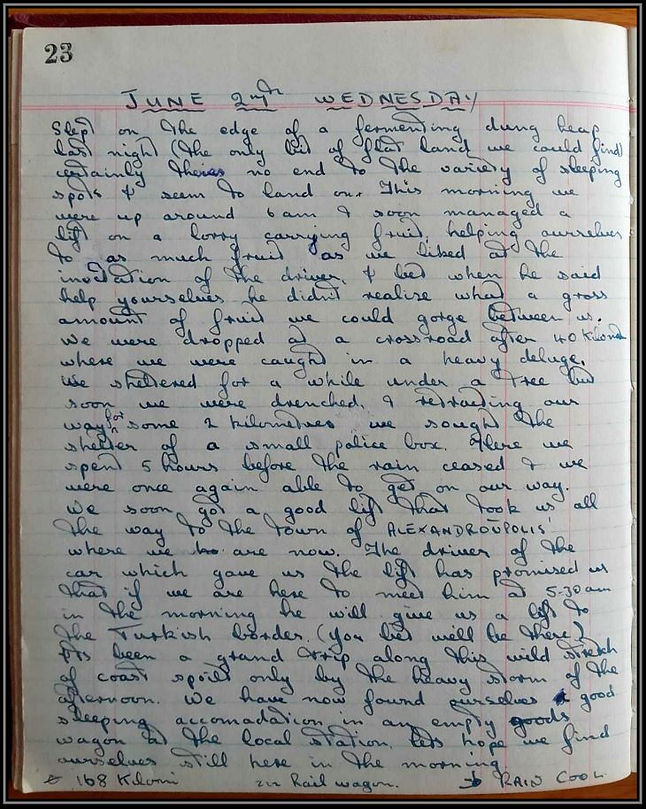 23
JUNE 2nd WEDNESDAY
Slept on the edge of a fermenting dung heap
last night (the only bit of flat land we could find)
certainly theres no end to the variety of sleeping
spots I seem to land on. This morning we
were up around 6 am & soon managed a
lift on a lorry carrying fruit, helping ourselves
to as much fruit as we liked at the
invitation of the driver. I bet when he said
help yourselves he didnt realise what a gross
amount of fruit we could gorge between us.
We were dropped at a crossroad after 40 Kiloms
where we were caught in a heavy deluge.
We sheltered for a while under a tree but
soon we were drenched, & retracting our
way for some 2 kilometres we sought the
shelter of a small police box. There we
spent 5 hours before the rain ceased & we
were once again able to get on our way.
We soon got a good lift that took us all
the way to the town of ALEXANDROUPOLIS'
where we are now. The driver of the
car which gave us the lift has promised us
that if we are here to meet him at 5-30 am
in the morning he will give us a lift to
the Turkish border. (You bet will be there)
Its been a grand trip along this wild stretch
of coast spoilt only by the heavy storm of the
afternoon. We have now found ourselves a good
sleeping accomadation in an empty goods
wagon at the local station. Lets hope we find
ourselves still here in the morning
168 Kilom in Rail wagon. RAIN COOL